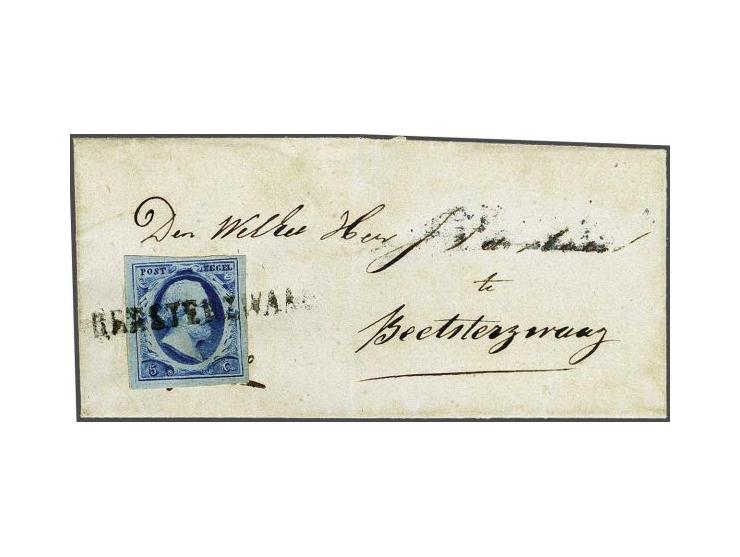 Den Welkee Heer J
te
Beetsterzwaag
POST ZEGEL
BEESTERZWAAG
5 C.